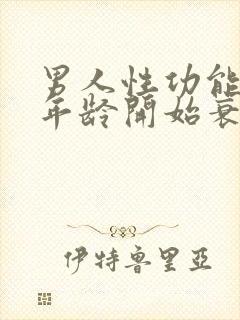 男人性功能
年龄開始衰
伊特鲁里亞